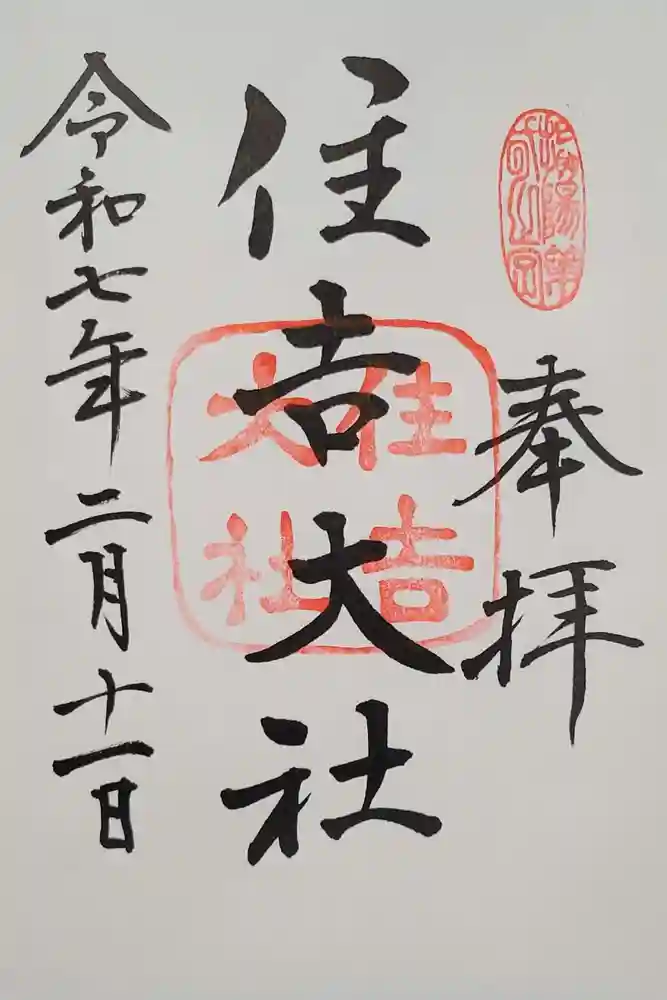 奉拝
住吉大社
住吉
大社
令和七年二月十一日